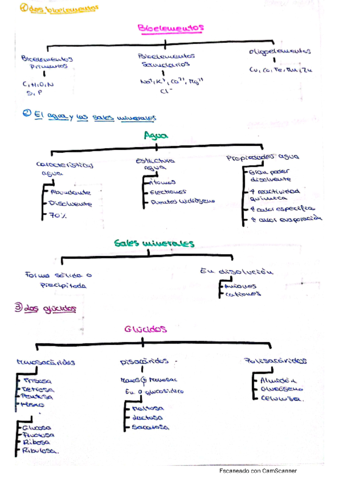 ① Los bioelementos
Bioelementos
Bioelementos Primarios
C, H, O, N
S, P
Bioelementos Secundarios
Na⁺, K⁺, Ca²⁺, Mg²⁺
Cl⁻
Oligoelementos
Cu, Co, Fe, Mn, Zn
② El agua y las sales minerales
Agua
Características agua
Abundante
Disolvente
70%
Estructura agua
Átomos
Electrones
Puentes hidrógeno
Propiedades agua
Gran poder disolvente
↑ reactividad química
↑ calor específico
↑ calor evaporación
Sales minerales
Forma sólida o precipitada
En disolución
Aniones
Cationes
③ Los glúcidos
Glúcidos
Monosacáridos
Triosa
Tetrosa
Pentosa
Hexosa
Glucosa
Fructosa
Ribosa
Ribulosa
Disacáridos
Maltosa
Lactosa
Sacarosa
Polisacáridos
Almidón
Glucógeno
Celulosa
Escaneado con CamScanner